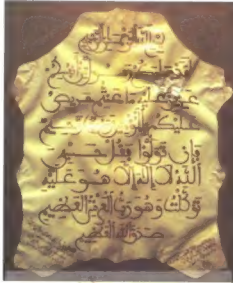 بسم الله الرحمن الرحيم
لقد جاءكم رسول من أنفسكم
عزيز عليه ما عنتم حريص
عليكم بالمؤمنين رءوف رحيم
فإن تولوا فقل حسبي
الله لا إله إلا هو عليه
توكلت وهو رب العرش العظيم
صدق الله العظيم